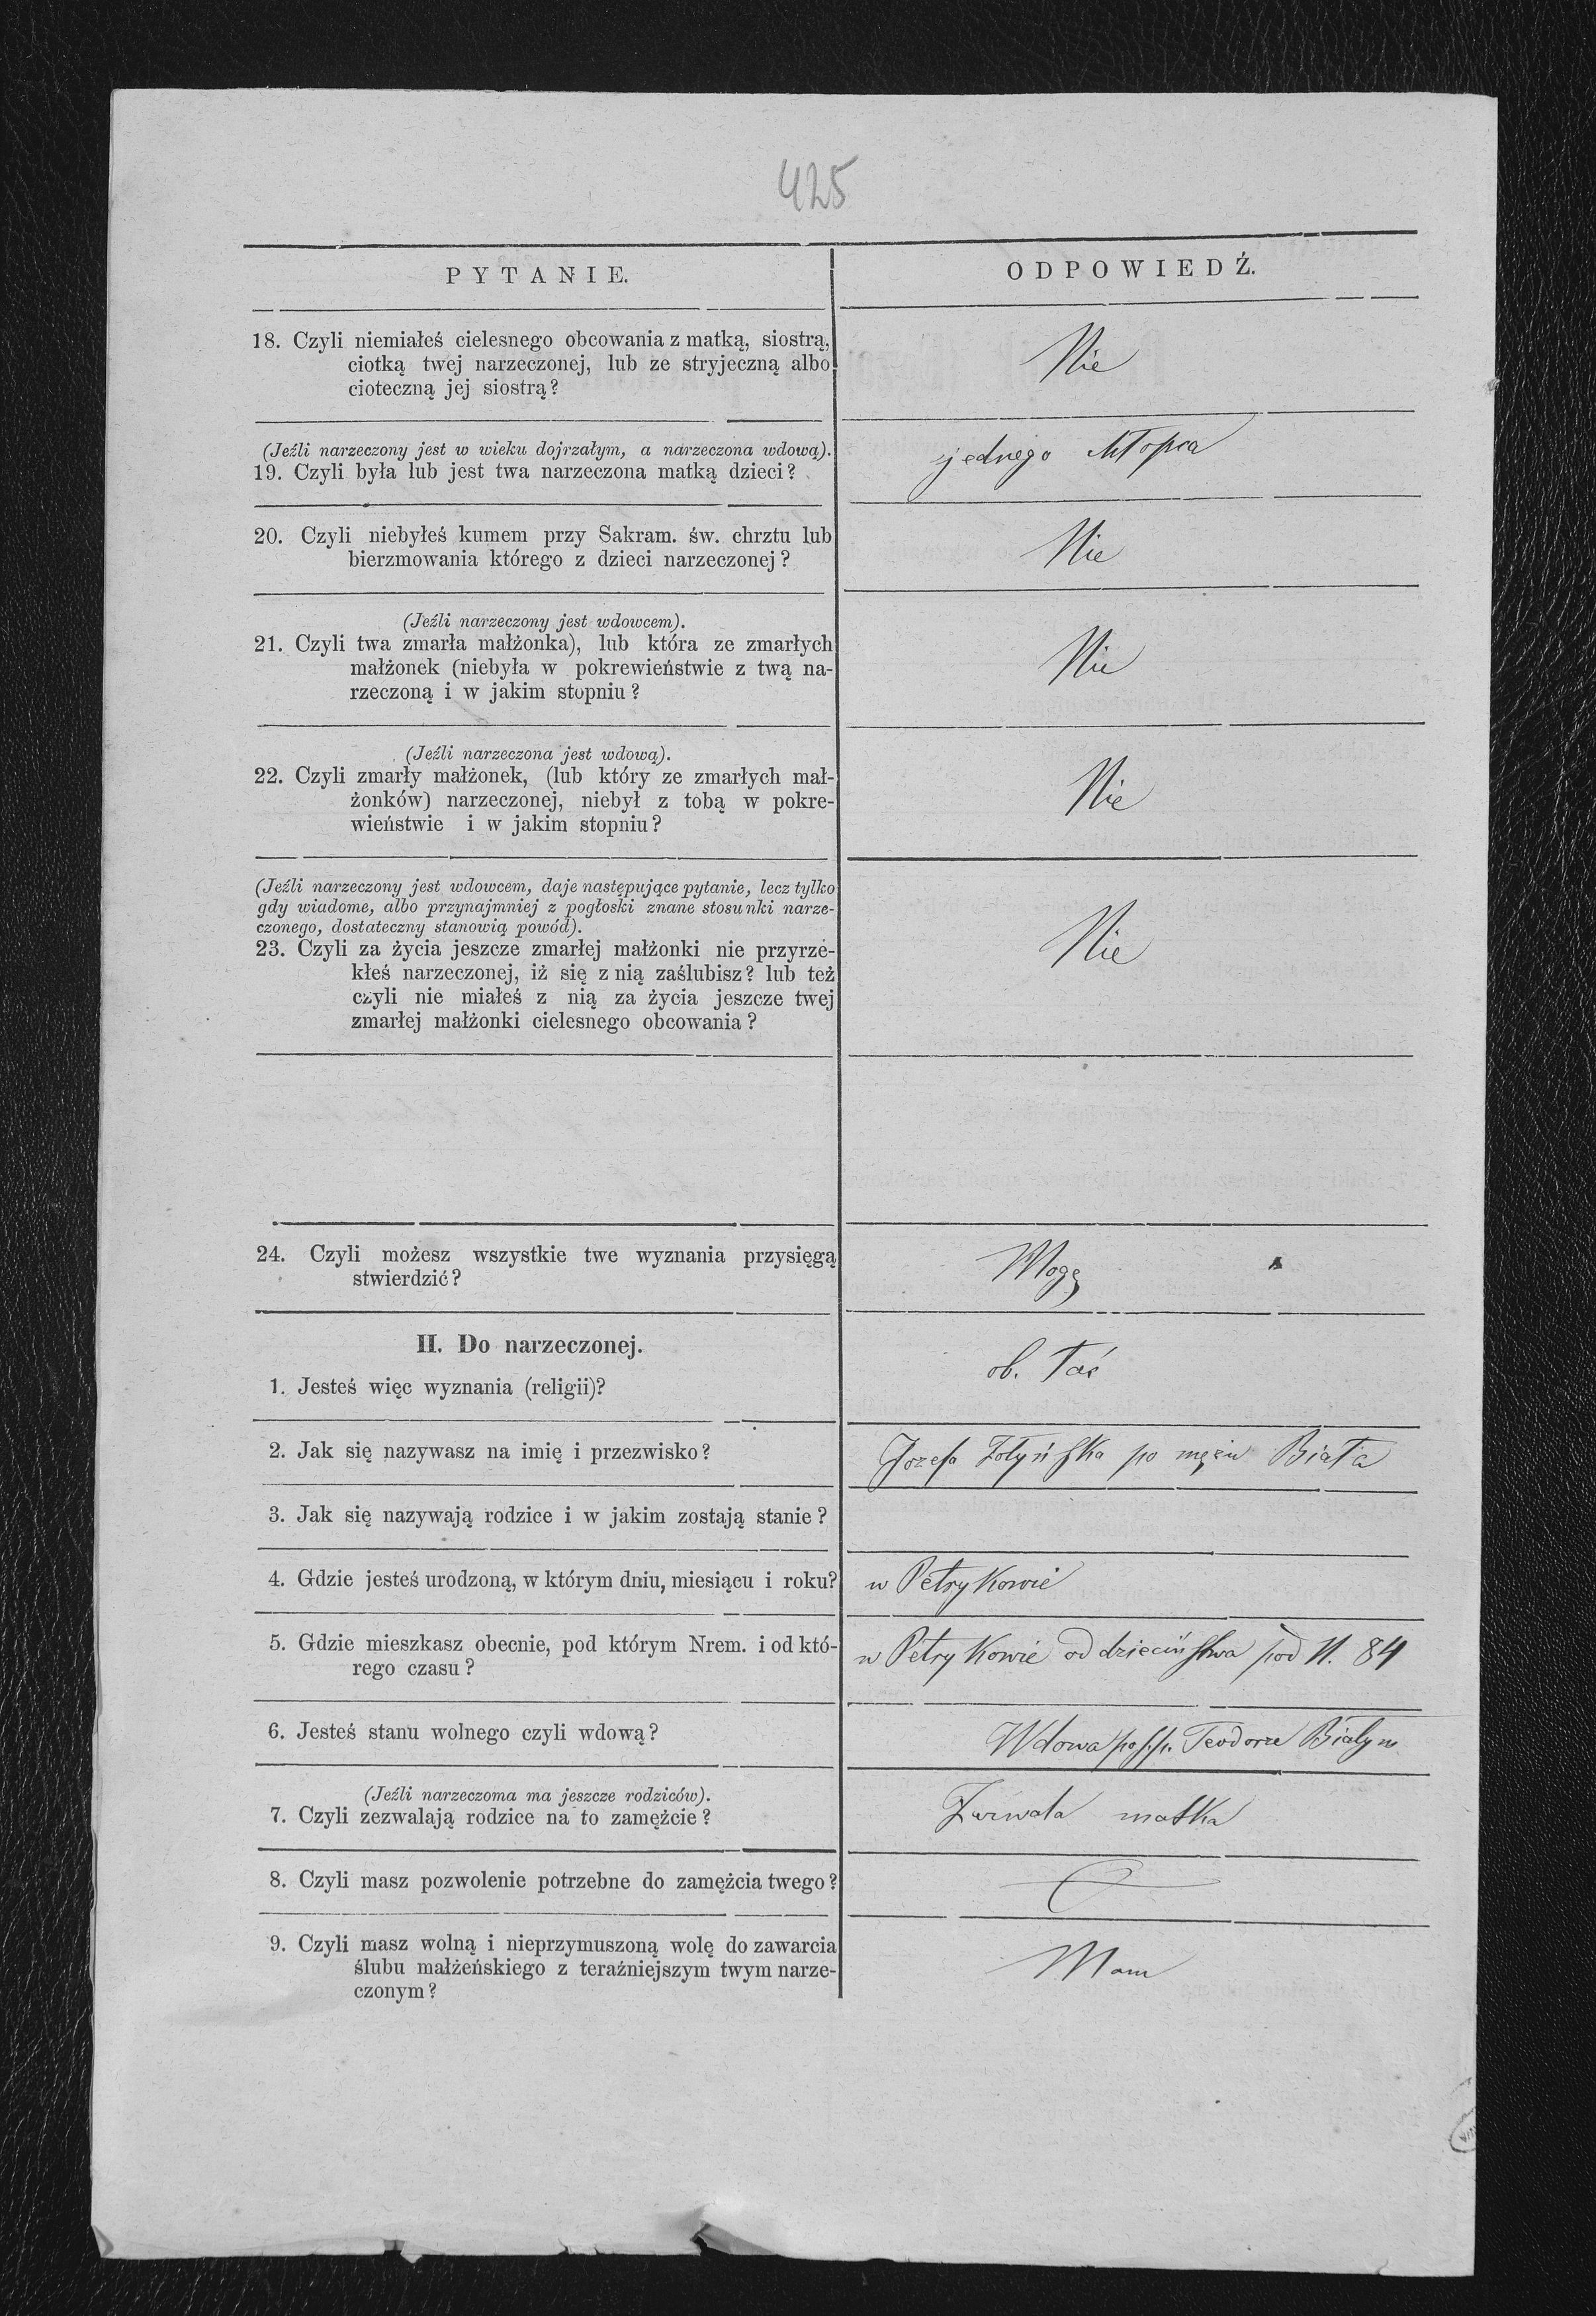 425
PYTANIE.
ODPOWIEDŹ.
18. Czyli niemiałeś cielesnego obcowania z matką, siostrą,
ciotką twej narzeczonej, lub ze stryjeczną albo
cioteczną jej siostrą?
Nie
(Jeźli narzeczony jest w wieku dojrzałym, a narzeczona wdową).
19. Czyli była lub jest twa narzeczona matką dzieci?
jednego chłopca
20. Czyli niebyłeś kumem przy Sakram. św. chrztu lub
bierzmowania którego z dzieci narzeczonej?
Nie
(Jeźli narzeczony jest wdowcem).
21. Czyli twa zmarła małżonka), lub która ze zmarłych
małżonek (niebyła w pokrewieństwie z twą na-
rzeczoną i w jakim stopniu?
Nie
(Jeźli narzeczona jest wdową).
22. Czyli zmarły małżonek, (lub który ze zmarłych mał-
żonków) narzeczonej, niebył z tobą w pokre-
wieństwie i w jakim stopniu?
Nie
(Jeźli narzeczony jest wdowcem, daje następujące pytanie, lecz tylko
gdy wiadome, albo przynajmniej z pogłoski znane stosunki narze-
czonego, dostateczny stanowią powód).
23. Czyli za życia jeszcze zmarłej małżonki nie przyrze-
kłeś narzeczonej, iż się z nią zaślubisz? lub też
czyli nie miałeś z nią za życia jeszcze twej
zmarłej małżonki cielesnego obcowania?
Nie
24. Czyli możesz wszystkie twe wyznania przysięgą
stwierdzić?
Mogę
II. Do narzeczonej.
1. Jesteś więc wyznania (religii)?
ob. łać
2. Jak się nazywasz na imię i przezwisko?
Jozefa Żołyńska po mężu Biała
3. Jak się nazywają rodzice i w jakim zostają stanie?
4. Gdzie jesteś urodzoną, w którym dniu, miesiącu i roku?
w Petrykowie
5. Gdzie mieszkasz obecnie, pod którym Nrem. i od któ-
rego czasu?
w Petrykowie od dzieciństwa pod N. 84
6. Jesteś stanu wolnego czyli wdową?
Wdowa po ś.p. Teodorze Białym
(Jeźli narzeczoma ma jeszcze rodziców).
7. Czyli zezwalają rodzice na to zamężcie?
matka
8. Czyli masz pozwolenie potrzebne do zamężcia twego?
9. Czyli masz wolną i nieprzymuszoną wolę do zawarcia
ślubu małżeńskiego z teraźniejszym twym narze-
czonym?
Mam